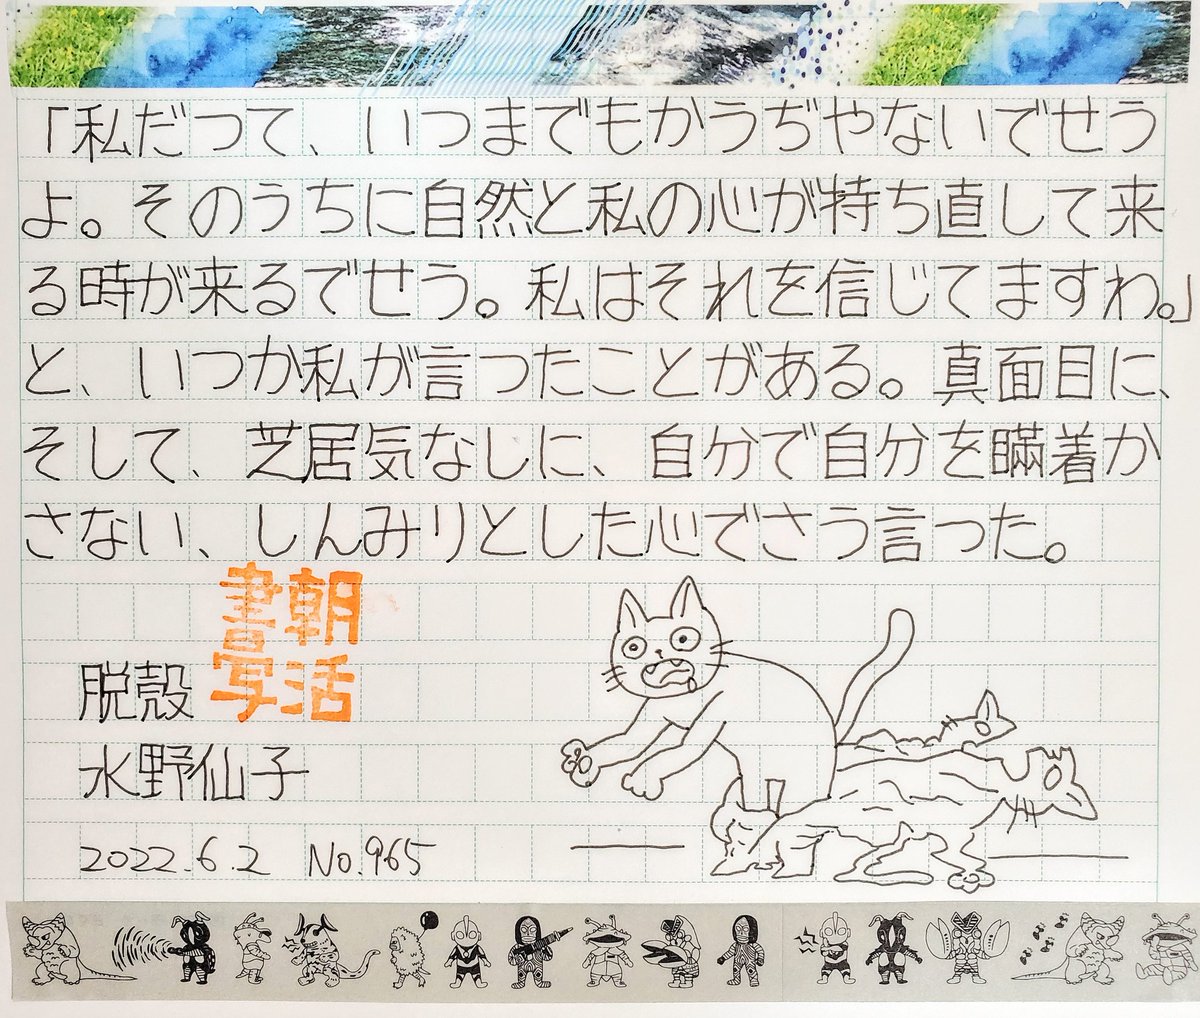 「私だつて、いつまでもかうぢやないでせう
よ。そのうちに自然と私の心が持ち直して来
る時が来るでせう。私はそれを信じてますわ。」
と、いつか私が言つたことがある。真面目に、
そして、芝居気なしに、自分で自分を瞞着か
さない、しんみりとした心でさう言つた。
朝活
書写
脱殻
水野仙子
2022.6.2 No.965